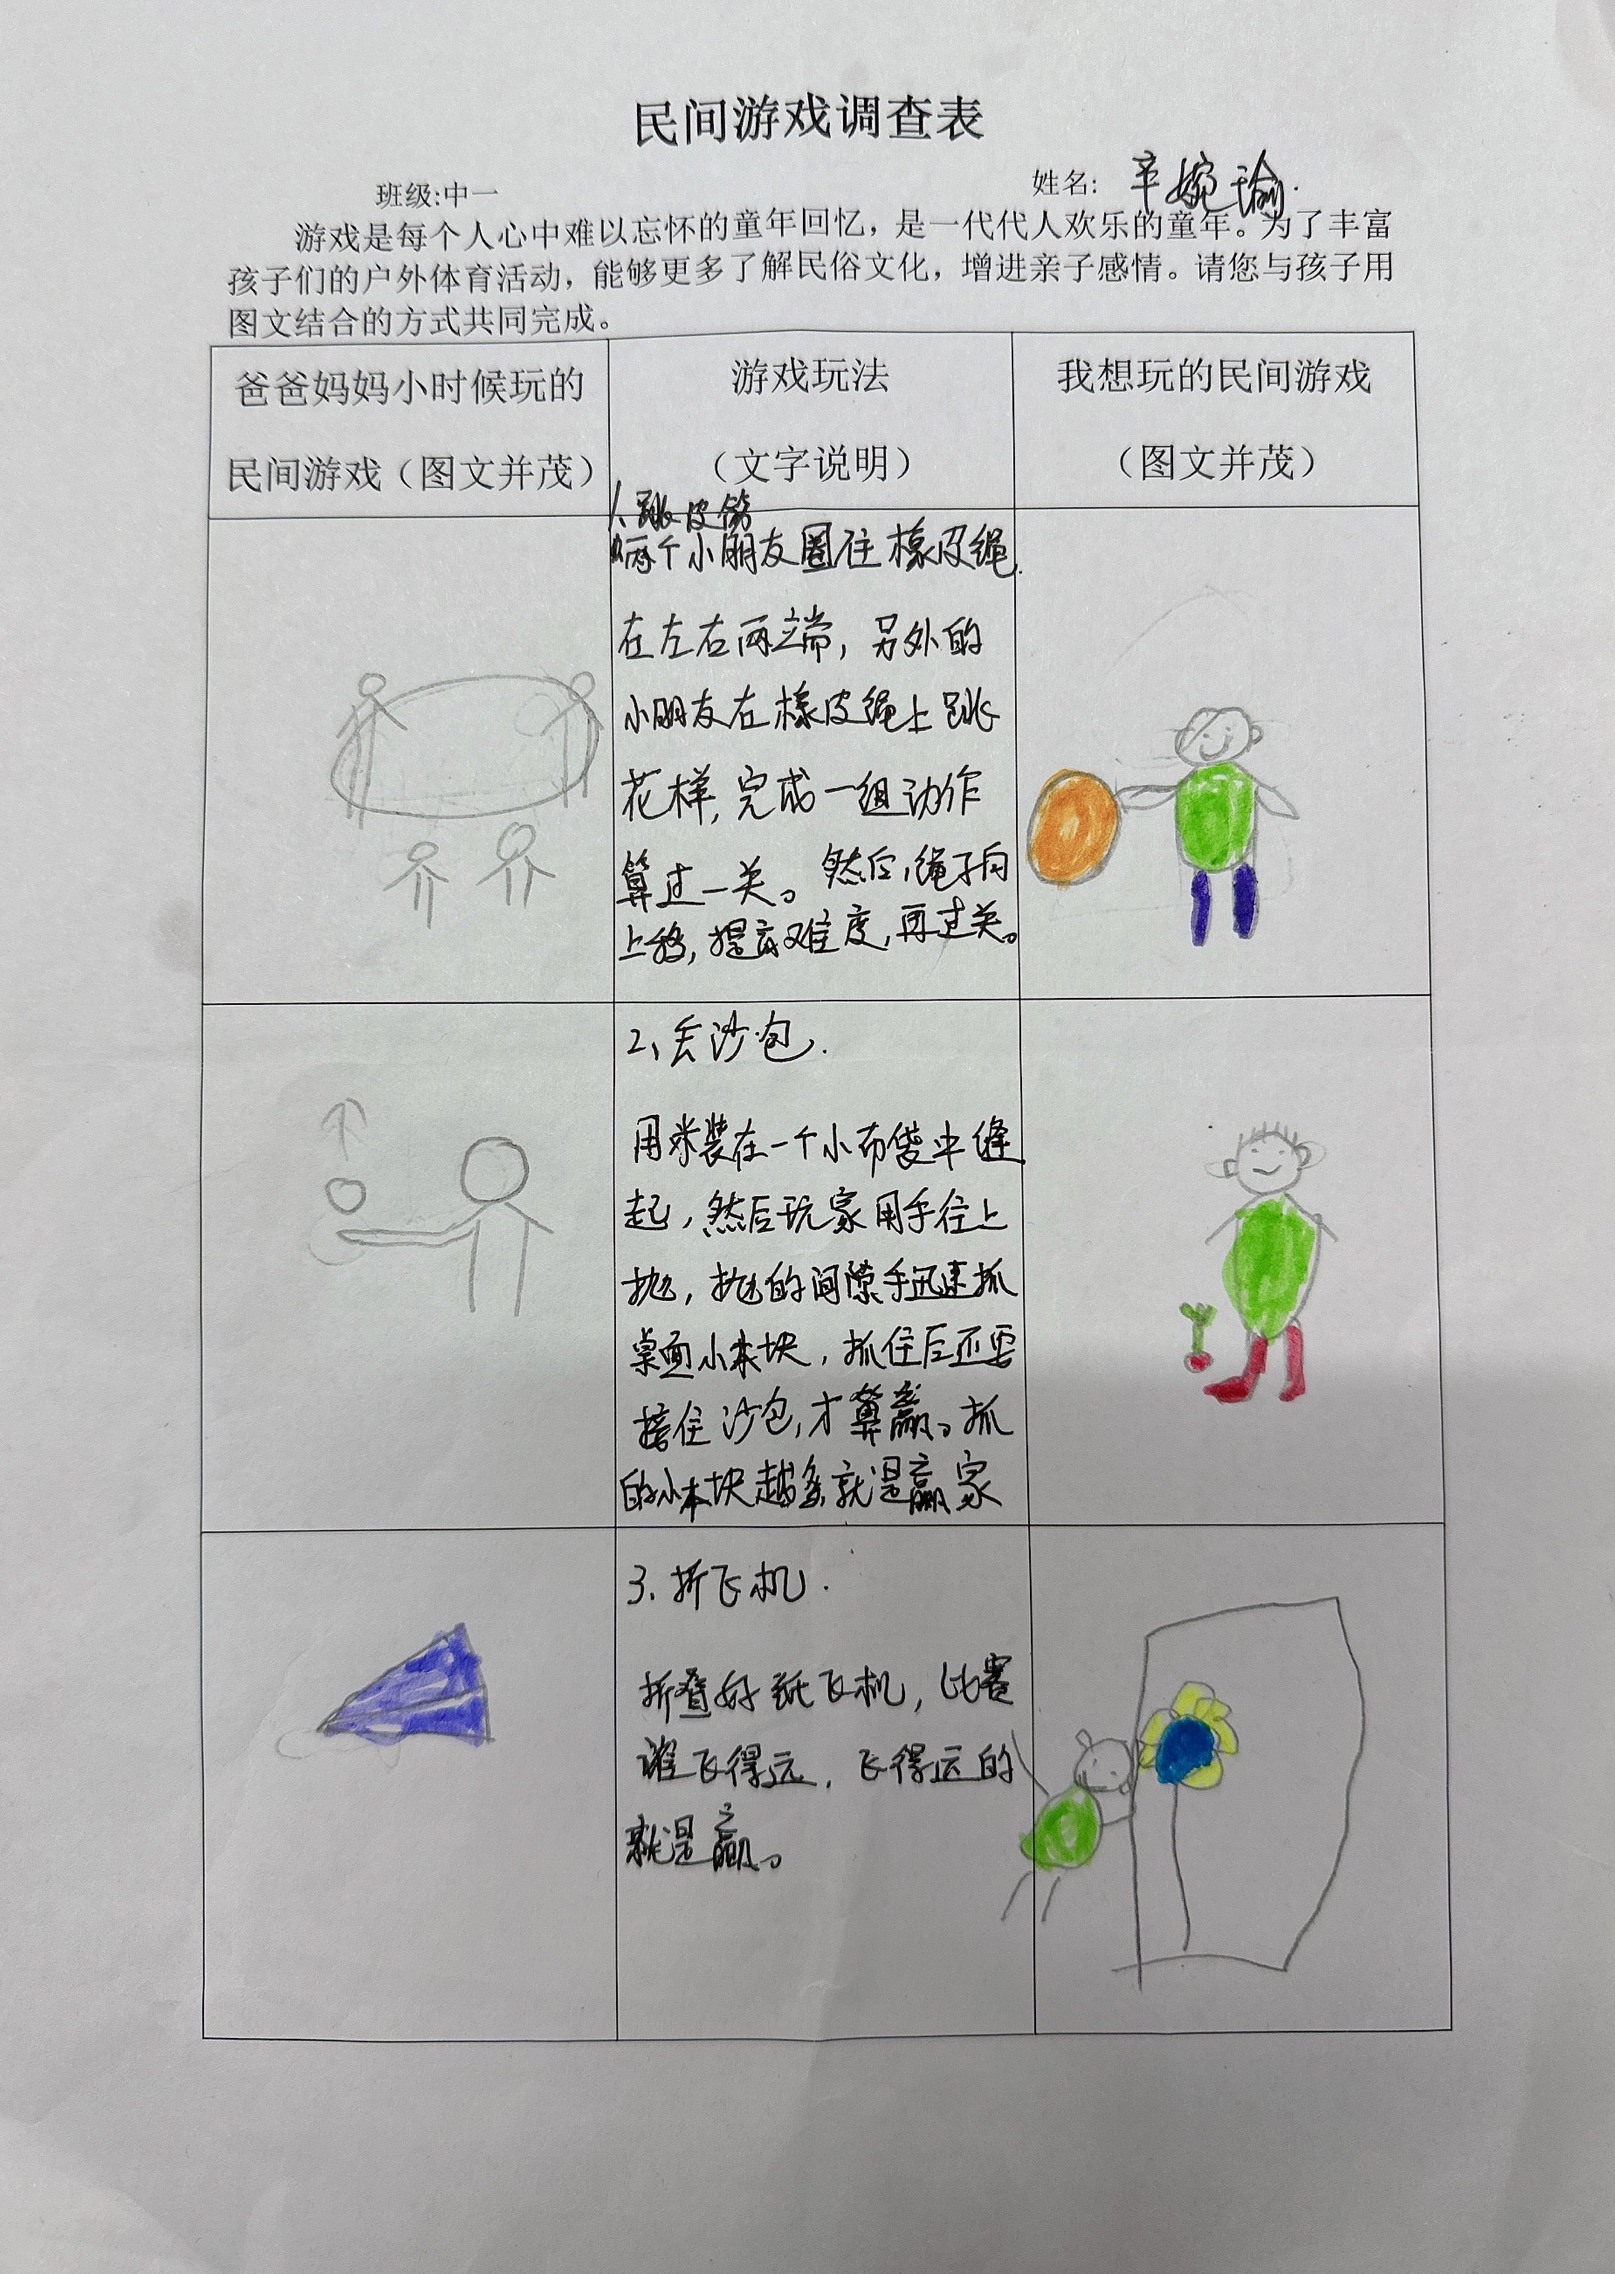 民间游戏调查表
班级:中一 姓名: 辛婉瑜.
游戏是每个人心中难以忘怀的童年回忆，是一代代人欢乐的童年。为了丰富
孩子们的户外体育活动，能够更多了解民俗文化，增进亲子感情。请您与孩子用
图文结合的方式共同完成。
爸爸妈妈小时候玩的
民间游戏（图文并茂）
游戏玩法
（文字说明）
我想玩的民间游戏
（图文并茂）
1、跳皮筋
两个小朋友圈住橡皮绳
在左右两端，另外的
小朋友在橡皮绳上跳
花样，完成一组动作
算过一关。然后，绳子向
上移，提高难度，再过关。
2、丢沙包.
用米装在一个小布袋中缝
起，然后玩家用手往上
抛，抛的间隙手迅速抓
桌面小木块，抓住后还要
接住沙包，才算赢。抓
的小木块越多就是赢家
3、折飞机.
折叠好纸飞机，比赛
谁飞得远，飞得远的
就是赢。